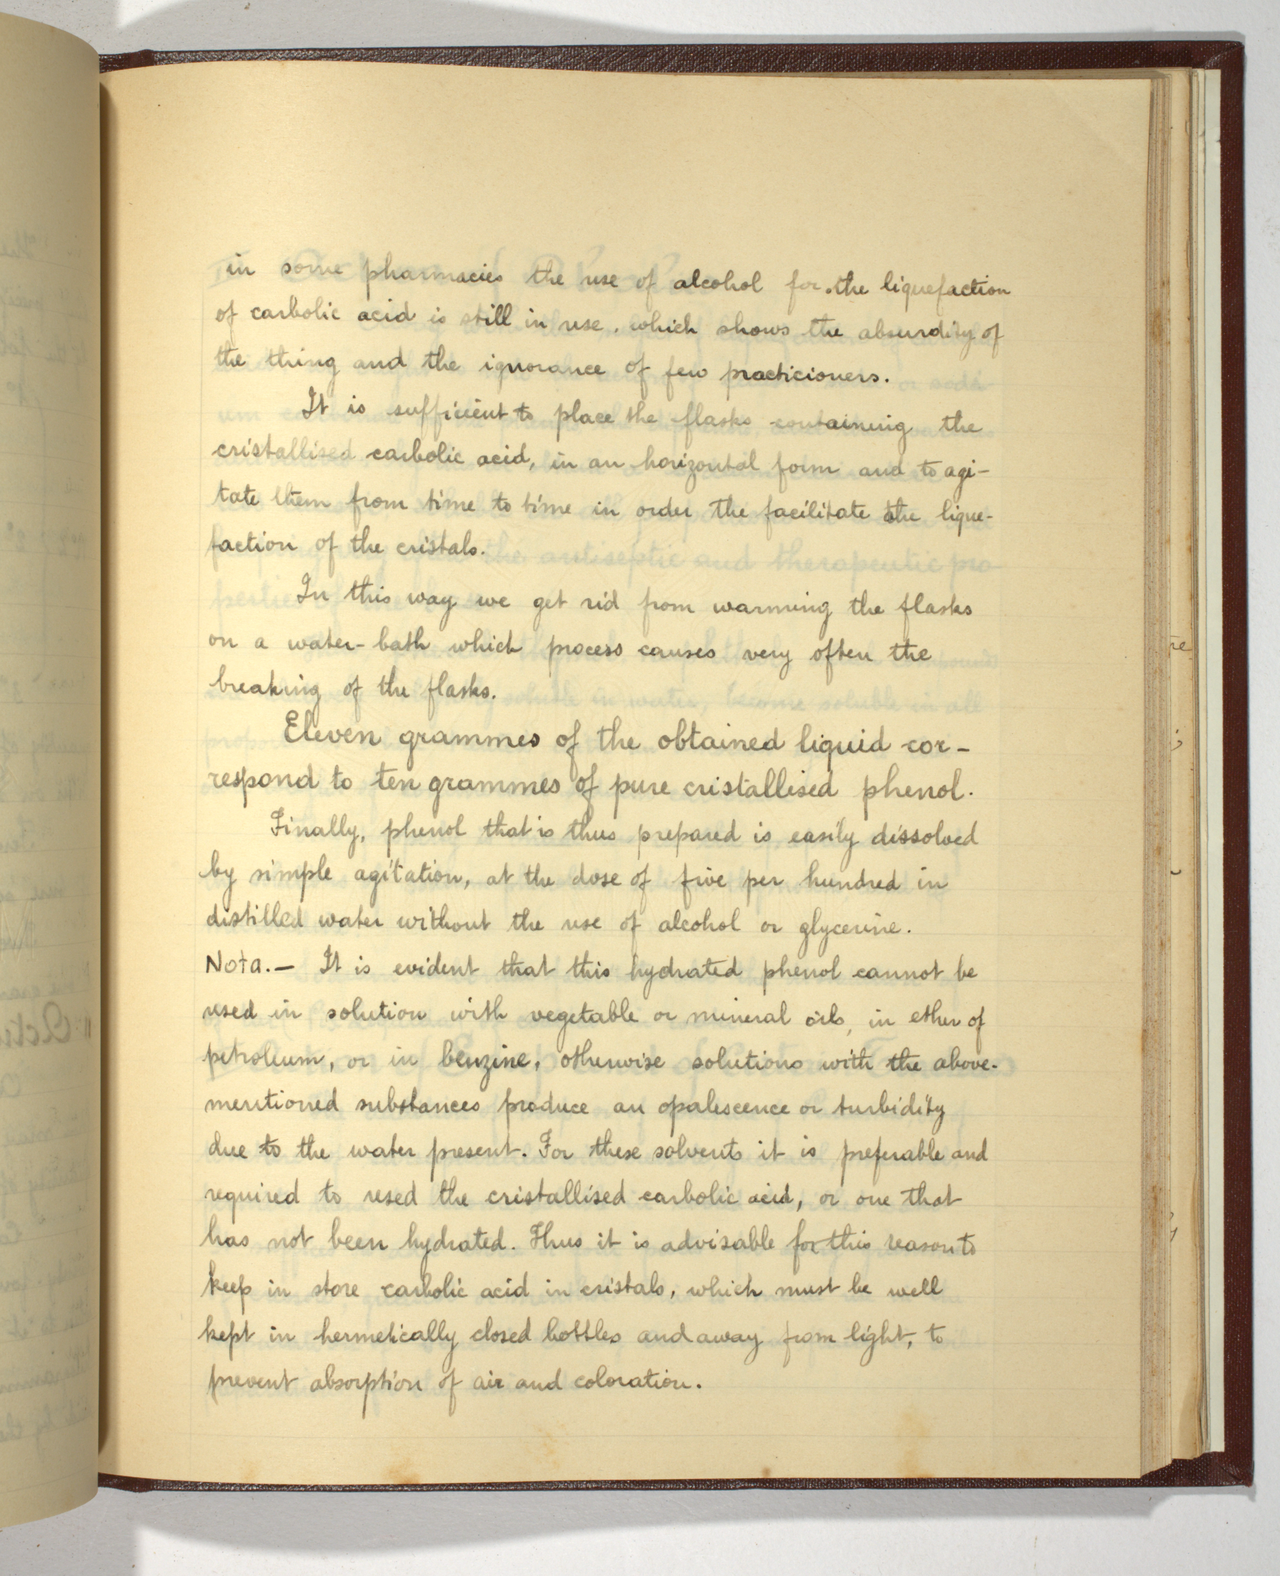 in some pharmacies the use of alcohol for the liquefaction
of carbolic acid is still in use, which shows the absurdity of
the thing and the ignorance of few practicioners.
It is sufficient to place the flasks containing the
cristallised carbolic acid, in an horizontal form and to agi-
tate them from time to time in order the facilitate the lique-
faction of the cristals.
In this way we get rid from warming the flasks
on a water-bath which process causes very often the
breaking of the flasks.
Eleven grammes of the obtained liquid cor-
respond to ten grammes of pure cristallised phenol.
Finally, phenol that is thus prepared is easily dissolved
by simple agitation, at the dose of five per hundred in
distilled water without the use of alcohol or glycerine.
Nota.— It is evident that this hydrated phenol cannot be
used in solution with vegetable or mineral oils, in ether of
petroleum, or in benzine, otherwise solutions with the above-
mentioned substances produce an opalescence or turbidity
due to the water present. For these solvents it is preferable and
required to used the cristallised carbolic acid, or one that
has not been hydrated. Thus it is advisable for this reason to
keep in store carbolic acid in cristals, which must be well
kept in hermetically closed bottles and away from light, to
prevent absorption of air and coloration.